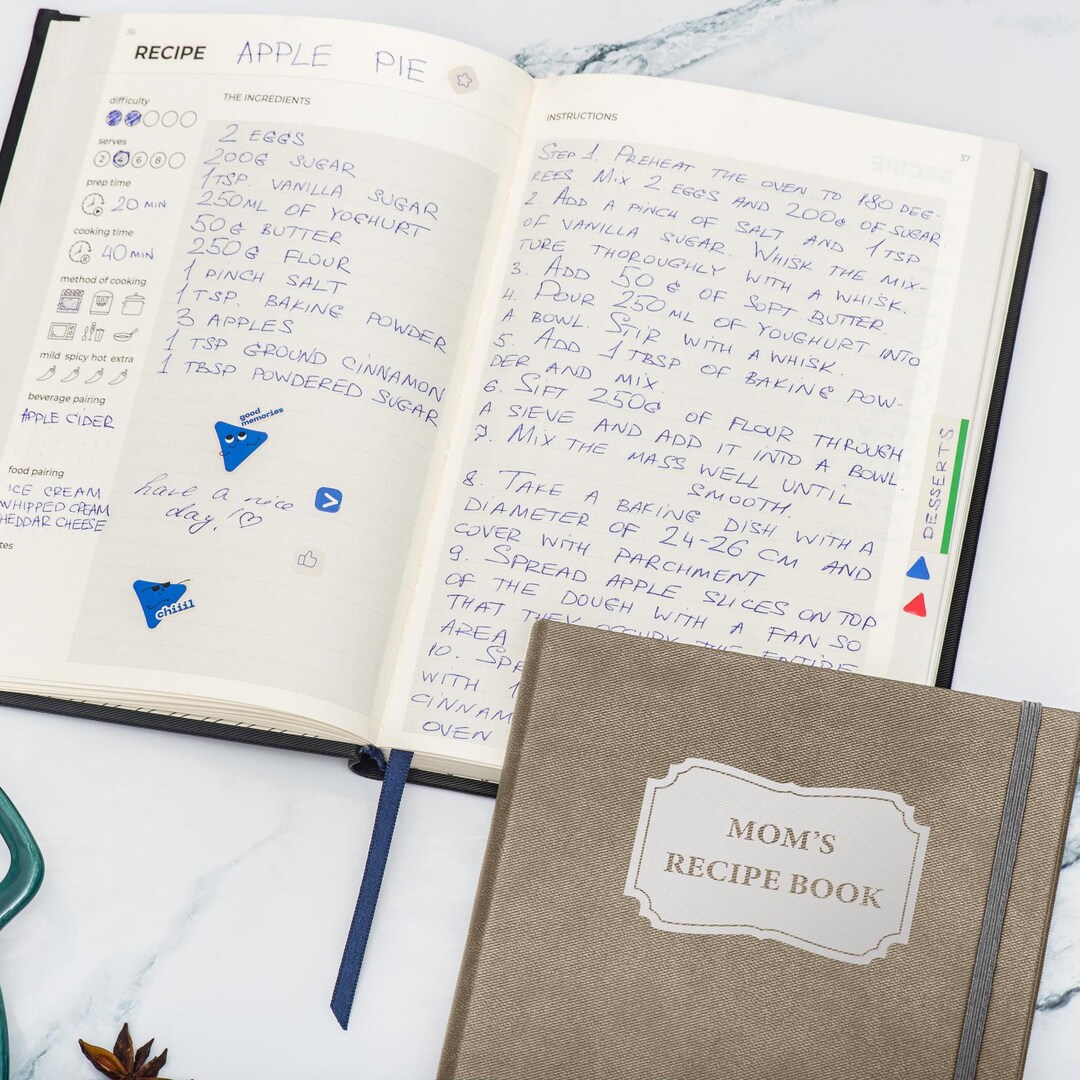 36
RECIPE APPLE PIE
difficulty
serves
2 4 6 8
prep time
20 MIN
cooking time
40 MIN
method of cooking
mild spicy hot extra
beverage pairing
APPLE CIDER
food pairing
ICE CREAM
WHIPPED CREAM
HEDDAR CHEESE
tes
THE INGREDIENTS
2 EGGS
200G SUGAR
1TSP. VANILLA SUGAR
250ML OF YOGHURT
50G BUTTER
250G FLOUR
1 PINCH SALT
1 TSP. BAKING POWDER
3 APPLES
1 TSP GROUND CINNAMON
1 TBSP POWDERED SUGAR
good
memories
have a nice
day!
chiiil
INSTRUCTIONS
37
STEP 1. PREHEAT THE OVEN TO 180 DEG-
REES MIX 2 EGGS AND 200G OF SUGAR.
2. ADD A PINCH OF SALT AND 1 TSP
OF VANILLA SUGAR. WHISK THE MIX-
TURE THOROUGHLY WITH A WHISK.
3. ADD 50 G OF SOFT BUTTER.
4. POUR 250 ML OF YOUGHURT INTO
A BOWL. STIR WITH A WHISK.
5. ADD 1 TBSP OF BAKING POW-
DER AND MIX.
6. SIFT 250G OF FLOUR THROUGH
A SIEVE AND ADD IT INTO A BOWL.
7. MIX THE MASS WELL UNTIL
SMOOTH.
8. TAKE A BAKING DISH WITH A
DIAMETER OF 24-26 CM AND
COVER WITH PARCHMENT
9. SPREAD APPLE SLICES ON TOP
OF THE DOUGH WITH A FAN SO
THAT THEY OCCUPY THE ENTIRE
AREA
10. SPR
WITH 1
CINNAM
OVEN
DESSERTS
MOM'S
RECIPE BOOK